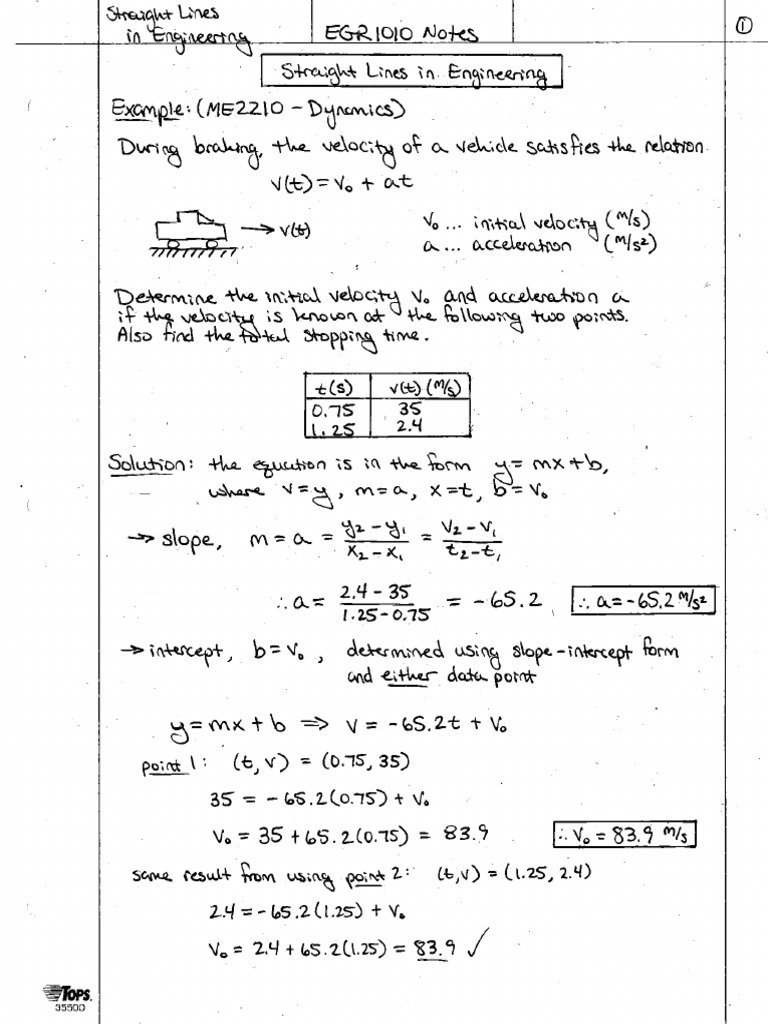 Straight Lines
in Engineering
EGR1010 Notes
1
Straight Lines in Engineering
Example: (ME2210 - Dynamics)
During braking, the velocity of a vehicle satisfies the relation
v(t) = v₀ + at
→ v(t)
v₀ ... initial velocity (m/s)
a ... acceleration (m/s²)
Determine the initial velocity v₀ and acceleration a
if the velocity is known at the following two points.
Also find the total stopping time.
t(s) v(t) (m/s)
0.75 35
1.25 2.4
Solution: the equation is in the form y = mx + b,
where v = y, m = a, x = t, b = v₀
→ slope, m = a = (y₂ - y₁)/(x₂ - x₁) = (v₂ - v₁)/(t₂ - t₁)
∴ a = (2.4 - 35)/(1.25 - 0.75) = -65.2 ∴ a = -65.2 m/s²
→ intercept, b = v₀, determined using slope-intercept form
and either data point
y = mx + b ⟹ v = -65.2t + v₀
point 1: (t, v) = (0.75, 35)
35 = -65.2(0.75) + v₀
v₀ = 35 + 65.2(0.75) = 83.9 ∴ v₀ = 83.9 m/s
same result from using point 2: (t,v) = (1.25, 2.4)
2.4 = -65.2(1.25) + v₀
v₀ = 2.4 + 65.2(1.25) = 83.9 ✓
TOPS
35500